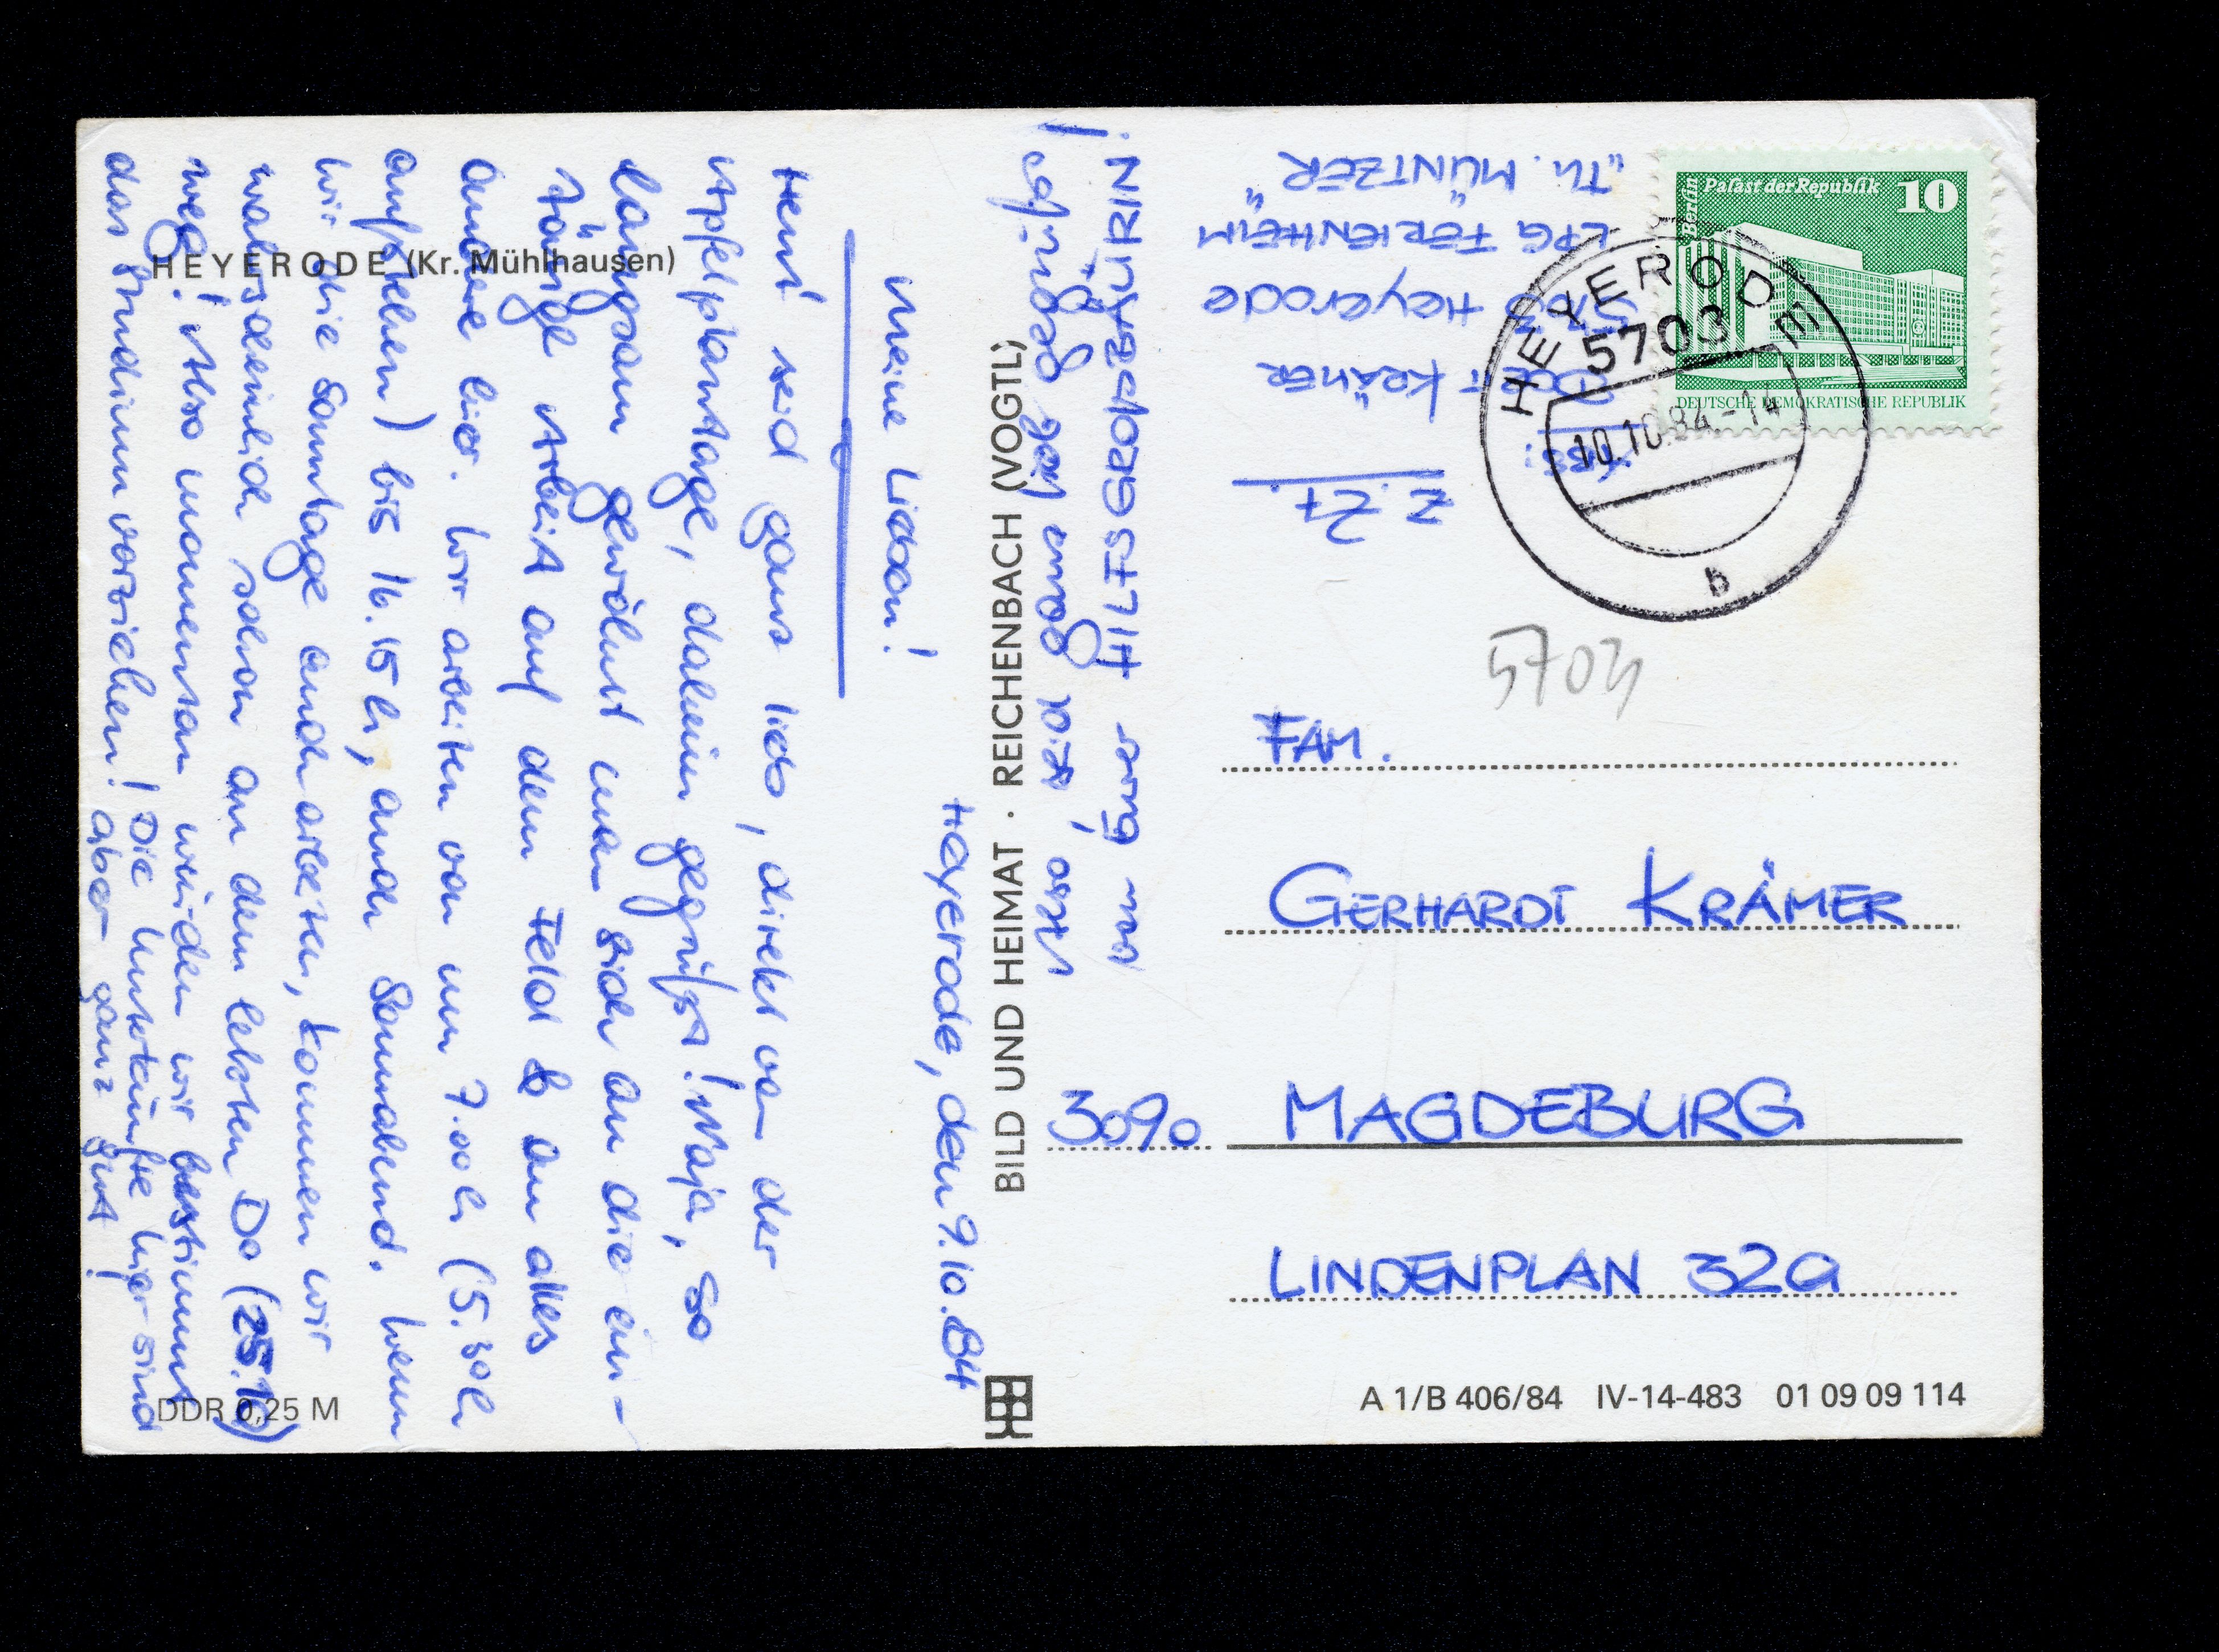 HEYERODE (Kr. Mühlhausen)
Heyerode, den 9.10.84
Meine Lieben!
Heut seid ganz lieb, direkt von der
Apfelplantage, daheim gegrüßt! Naja, so
langsam gewöhnt man sich an die ein-
tönige Arbeit auf dem Feld & an alles
andere hier. Wir arbeiten von um 7.00 h (5.30 h
aufstehen) bis 16.15 h, auch Sonnabend. Wenn
wir die Sonntage auch arbeiten, kommen wir
wahrscheinlich schon an dem letzten Do (25.10)
weg! Also momentan würden wir bestimmt
das Studium vorziehen! Die Unterkünfte hier sind
aber ganz gut!
Also, seid ganz lieb gegrüßt
von Eurer HILFTSGEROTZBÄUERIN!
BILD UND HEIMAT · REICHENBACH (VOGTL)
Z. Zt.
Abs.:
KRÄMER
5703 Heyerode
LPG FERIENHEIM
"TH. MÜNTZER"
Berlin
Palast der Republik
10
DEUTSCHE DEMOKRATISCHE REPUBLIK
HEYERODE
5703
10.10.84.-14
b
5703
FAM.
GERHARDT KRÄMER
3090 MAGDEBURG
LINDENPLAN 32a
DDR 0,25 M
A 1/B 406/84 IV-14-483 01 09 09 114